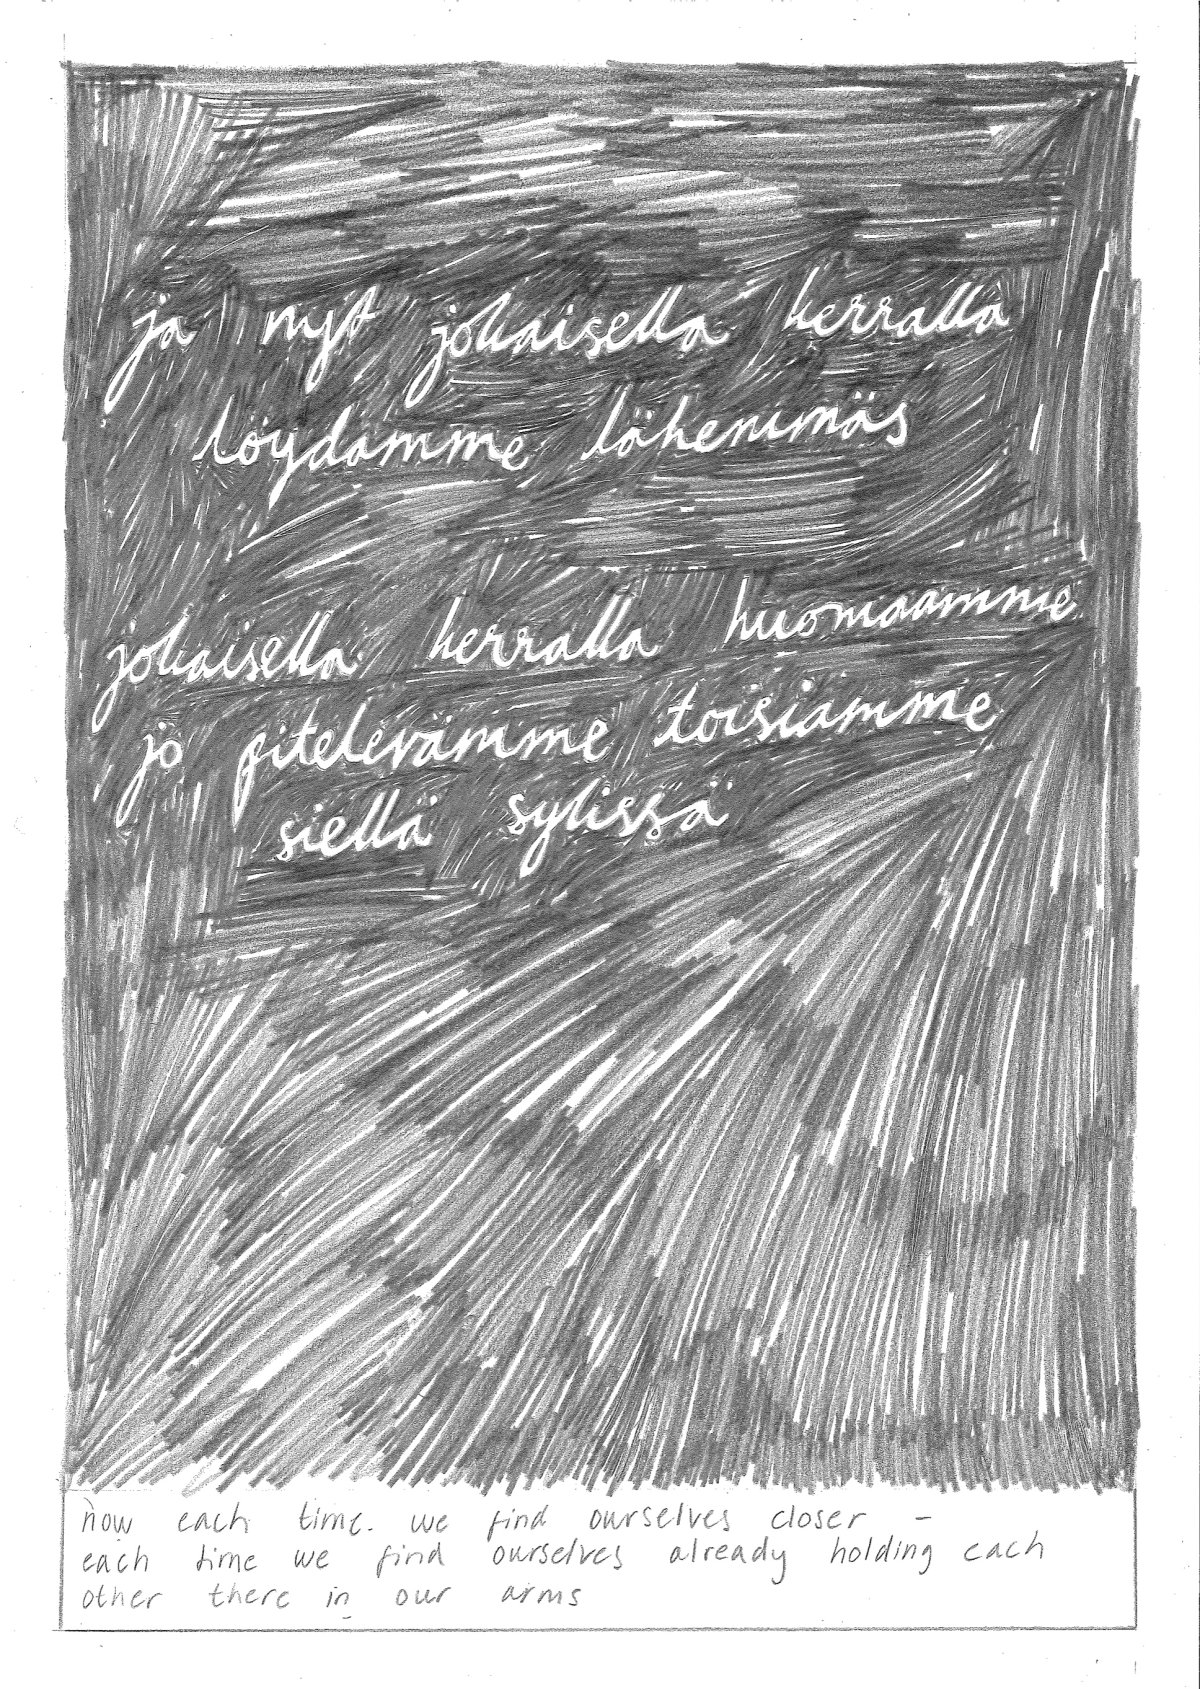 ja nyt jokaisella kerralla
löydämme lähemmäs
jokaisella kerralla huomaamme
jo pitelevämme toisiamme
siellä sylissä
now each time. we find ourselves closer –
each time we find ourselves already holding each
other there in our arms